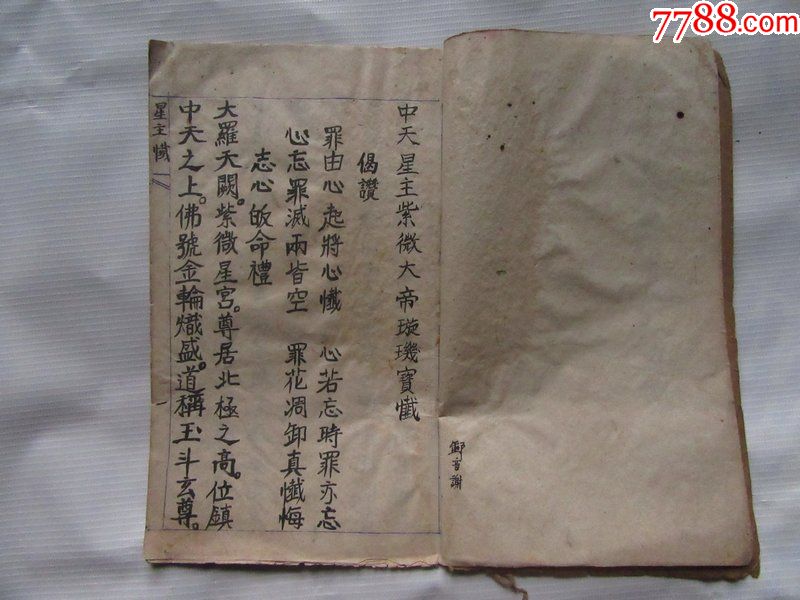 7788.com
中天星主紫微大帝璇璣寶懺
偈讚
罪由心起將心懺　心若忘時罪亦忘
心忘罪滅兩皆空　罪花凋卸真懺悔
志心皈命禮
大羅天闕。紫微星宮。尊居北極之高。位鎮
中天之上。佛號金輪熾盛。道稱玉斗玄尊。
星主懺